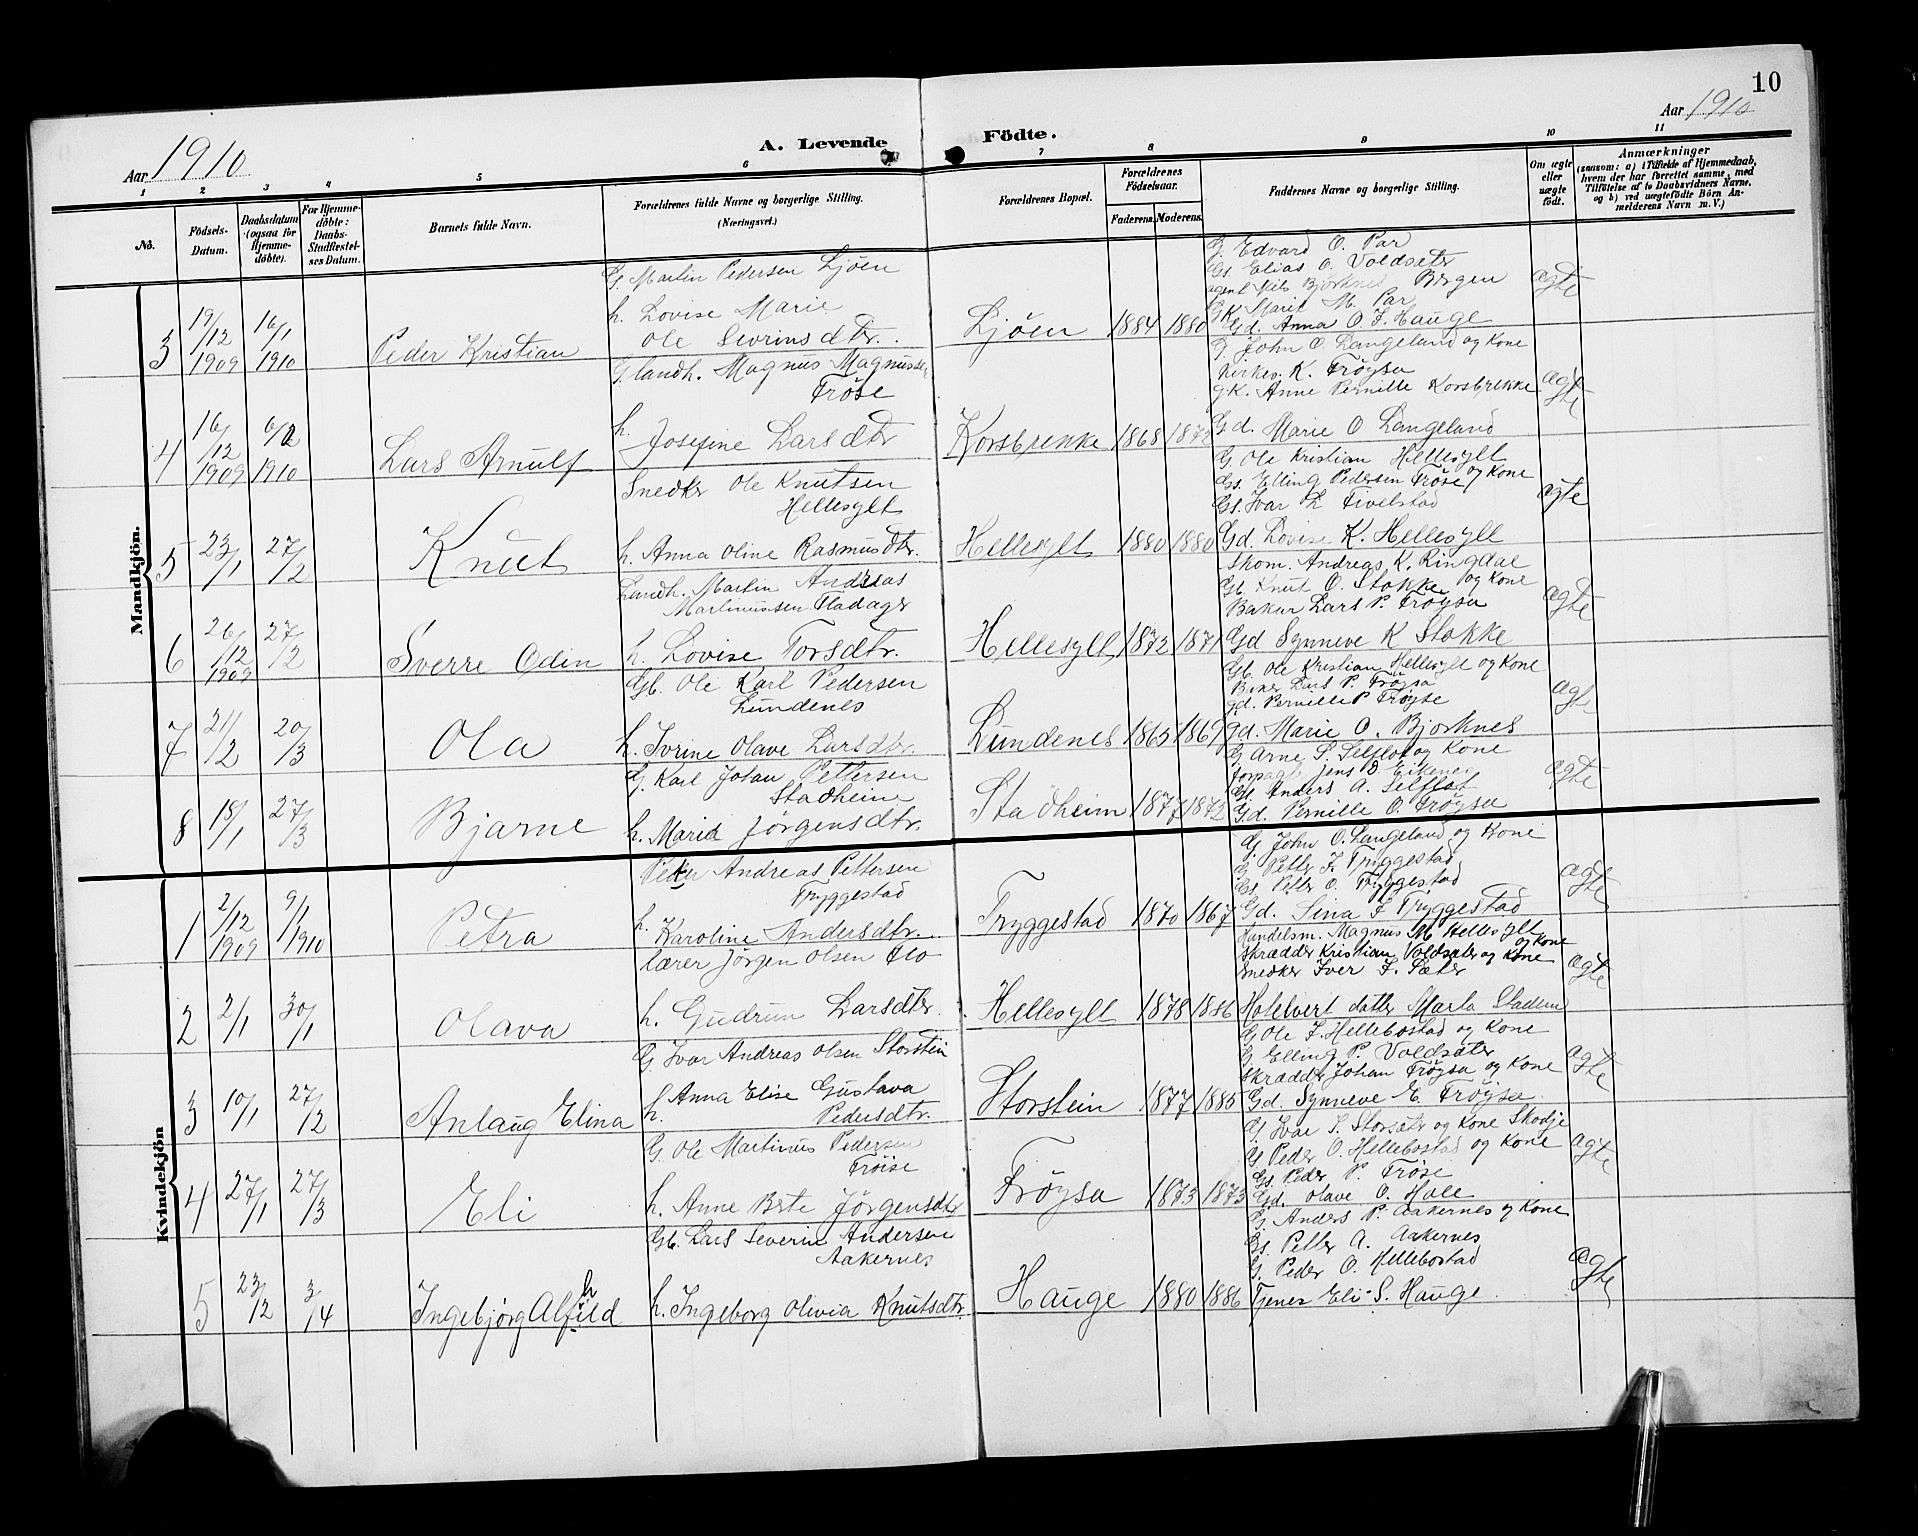 10
Aar 1910
A. Levende Födte.
Aar 1910
1 2 3 4 5 6 7 8 9 10 11
No.
Födsels-Datum.
Daabsdatum (ogsaa för Hjemme-döbte).
For Hjemme-döbte: Daabs-Stadfæstel-ses Datum.
Barnets fulde Navn.
Forældrenes fulde Navne og borgerlige Stilling. (Næringsvei.)
Forældrenes Bopæl.
Forældrenes Födselsaar.
Faderens. Moderens.
Faddernes Navne og borgerlige Stilling.
Om ægte eller uægte födt.
Anmærkninger
(saasom: a) i Tilfælde af Hjemmedaab, hvem der har forrettet samme, med Tilföielse af to Daabsvidners Navne, og b) ved uægtefödte Börn An-melderens Navn m. V.)
Mandkjön.
3 19/12 1909 16/1 1910 Peder Kristian
G. Martin Pedersen Ljöen
h. Lovise Marie
Ole Sevrinsdtr.
Ljöen 1884 1880
G. Edvard O. Par
Gs. Elias O. Voldsæter
agent Nils Bjørknes Bergen
GK. Marie M. Par
Gd. Anna O. J. Hauge
ægte
4 16/12 1909 6/2 1910 Lars Arnulf
G. landh. Magnus Magnussen
Fröse
h. Josefine Larsdtr
Korsbrekke 1868 1872
G. John O. Langeland og Kone
Kirkes. K. Fröysa
GK. Anne Pernille Korsbrekke
Gd. Marie O Langeland
ægte
5 23/1 27/2 Knut
Snedker Ole Knutsen
Hellesylt
h. Anna Oline Rasmusdtr.
Hellesylt 1880 1880
G. Ole Kristian Hellesylt
Gs. Elling Pedersen Fröse og Kone
Gs. Ivar L Tivelstad
Gd. Lovise K. Hellesylt
ægte
6 26/12 1909 27/2 Sverre Odin
Landh. Martin Andreas
Martinussen Fladager
h. Lovise Torsdtr.
Hellesylt 1872 1871
Skom. Andreas K. Ringdal
Gb. Knut O. Stokke og Kone
Baker Lars P. Fröysa
Gd Synneve K Stokke
ægte
7 21/2 20/3 Ola
Gb. Ole Karl Pedersen
Lundenes
h. Ivrine Olave Larsdtr.
Lundenes 1865 1869
Gb. Ole Kristian Hellesylt og Kone
Baker Lars P. Fröysa
gd. Pernille P Fröyse
gd. Marie O. Bjorknes
ægte
8 18/1 27/3 Bjarne
G. Karl Johan Pettersen
Stadheim
h. Marie Jörgensdtr.
Stadheim 1877 1872
G Arne P. Selflot og Kone
Jens D Eikenes
Gs. Anders A. Selflot
Gd. Pernille O Fröysa
ægte
Kvindekjön
1 2/12 1909 9/1 1910 Petra
Peter Andreas Pettersen
Tryggestad
h. Karoline Andersdtr.
Tryggestad 1870 1867
G. John O. Langeland og Kone
G. Petter J. Tryggestad
Gs. Petter O. Tryggestad
Gd. Sina J Tryggestad
ægte
2 2/1 30/1 Olava
lærer Jörgen Olsen Flo
h. Gudrun Larsdtr.
Hellesylt 1878 1886
Handelsm. Magnus M Hellesylt og Kone
Skrædder Kristian Voldsæter og Kone
Snedker Iver J. Sæter
Hotelvert datter Marta Stadheim
ægte
3 10/1 27/2 Anlaug Elina
G Ivar Andreas Olsen Storstein
h. Anna Elise Gustava
Pedersdtr.
Storstein 1877 1885
G Ole J. Hellebostad og Kone
G Elling P. Voldsæter
Skrædder Johan Fröysa og Kone
Gd. Synneve E. Fröysa
ægte
4 27/1 27/3 Eli
G. Ole Martinus Pedersen
Fröise
h. Anne Berte Jörgensdtr
Fröysa 1873 1873
G. Ivar S. Storsæter og Kone Skodje
G. Peder O. Hellebostad og Kone
Gs. Peder P. Fröse
Gd. Olave O. Hole
ægte
5 23/12 3/4 Ingebjörg Alfhild
Gb. Lars Severin Andersen
Aakernes
h. Ingeborg Olivia Knutsdtr.
Hauge 1880 1886
G. Anders P. Aakernes og Kone
Gs. Petter A. Aakernes
G. Peder O. Hellebostad
Tjener Eli S. Hauge
ægte